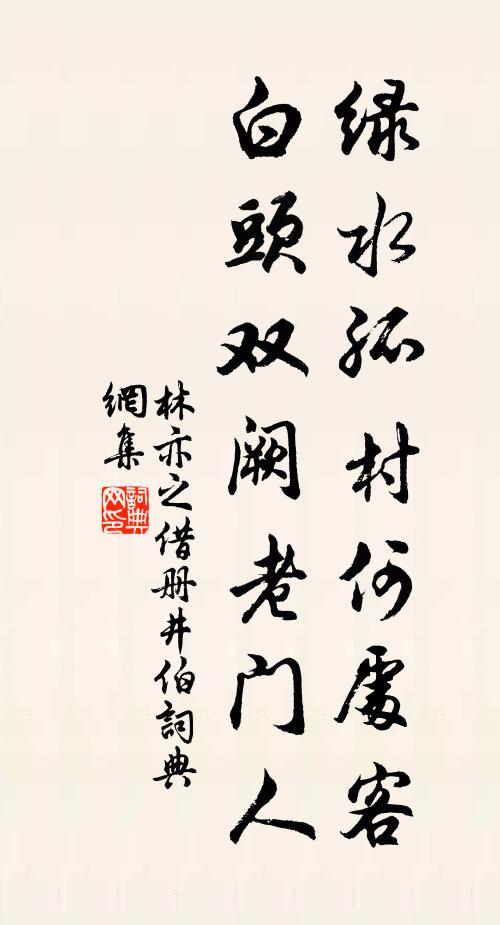 绿水孤村何處客
白頭双阙老门人
林亦之借册井伯詞典
網集
詞典网印